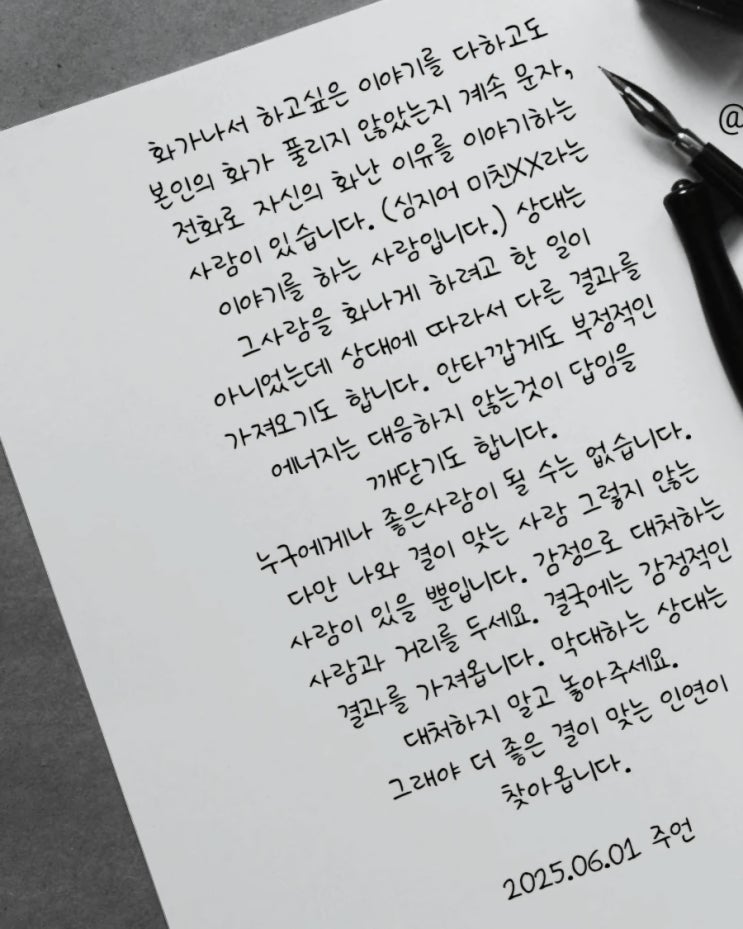 화가나서 하고싶은 이야기를 다하고도
본인의 화가 풀리지 않았는지 계속 문자,
전화로 자신의 화난 이유를 이야기하는
사람이 있습니다. (심지어 미친XX라는
이야기를 하는 사람입니다.) 상대는
그사람을 화나게 하려고 한 일이
아니었는데 상대에 따라서 다른 결과를
가져오기도 합니다. 안타깝게도 부정적인
에너지는 대응하지 않는것이 답임을
깨닫기도 합니다.
누구에게나 좋은사람이 될 수는 없습니다.
다만 나와 결이 맞는 사람 그렇지 않는
사람이 있을 뿐입니다. 감정으로 대처하는
사람과 거리를 두세요. 결국에는 감정적인
결과를 가져옵니다. 막대하는 상대는
대처하지 말고 놓아주세요.
그래야 더 좋은 결이 맞는 인연이
찾아옵니다.
2025.06.01 주언
@